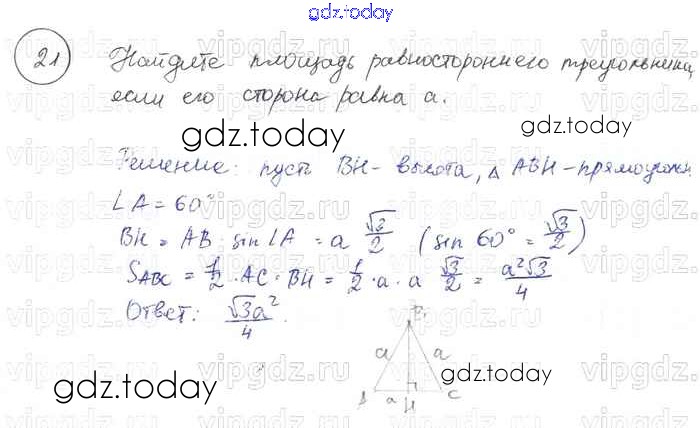 gdz.today
21 Найдите площадь равностороннего треугольника,
если его сторона равна a.
gdz.today
gdz.today
Решение: пусть BH - высота, △ ABH - прямоугольн
∠A = 60°
BH = AB · sin∠A = a √3/2 (sin 60° = √3/2)
S ABC = 1/2 · AC · BH = 1/2 · a · a √3/2 = a²√3/4
Ответ: √3a²/4.
B
a a
gdz.today
gdz.today
A a H C